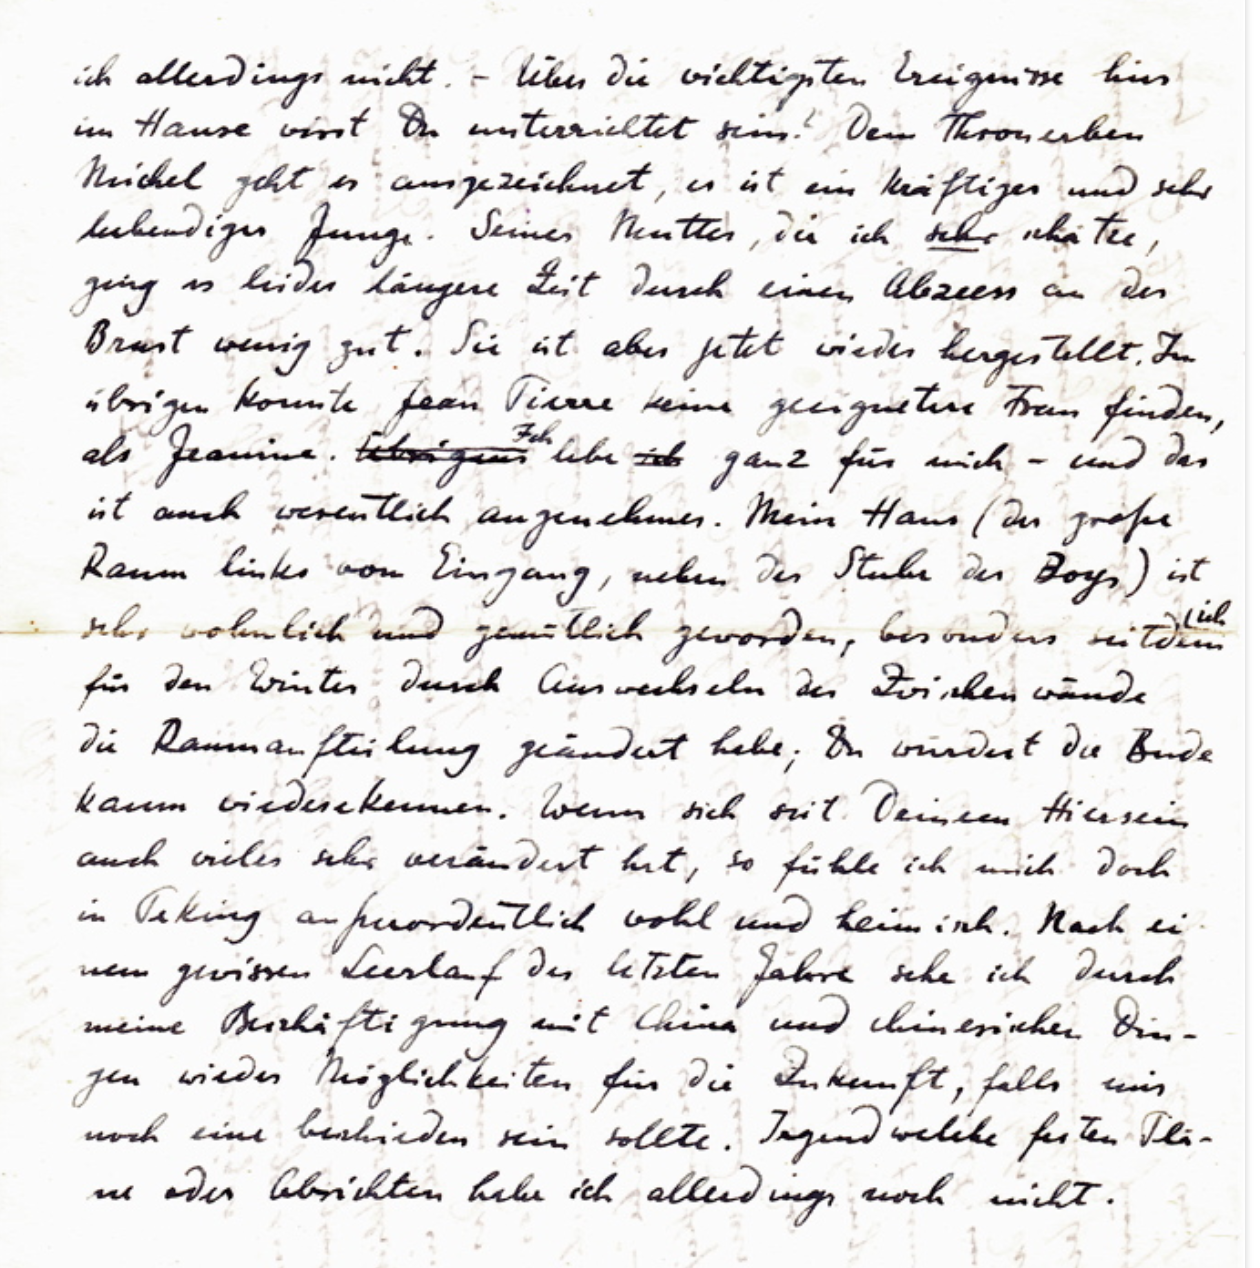 ich allerdings nicht. – Über die wichtigsten Ereignisse hier
im Hause wirst Du unterrichtet sein! Dem Thronerben
Michel geht es ausgezeichnet, er ist ein kräftiger und sehr
lebendiger Junge. Seiner Mutter, die ich sehr schätze,
ging es leider längere Zeit durch einen Abzess an der
Brust wenig gut. Sie ist aber jetzt wieder hergestellt. Im
übrigen konnte Jean Pierre keine geeignetere Frau finden,
als Jeanine. Übrigens Ich lebe ich ganz für mich – und das
ist auch wesentlich angenehmer. Mein Haus (der große
Raum links vom Eingang, neben der Stube der Boys) ist
sehr wohnlich und gemütlich geworden, besonders seitdem ich
für den Winter durch Auswechseln der Zwischenwände
die Raumaufteilung geändert habe; Du würdest die Bude
kaum wiedererkennen. Wenn sich seit Deinem Hiersein
auch vieles sehr verändert hat, so fühle ich mich doch
in Peking außerordentlich wohl und heimisch. Nach ei
nem gewissen Leerlauf der letzten Jahre sehe ich durch
meine Beschäftigung mit China und chinesischen Din-
gen wieder Möglichkeiten für die Zukunft, falls mir
noch eine beschieden sein sollte. Irgendwelche festen Plä-
ne oder Absichten habe ich allerdings noch nicht.